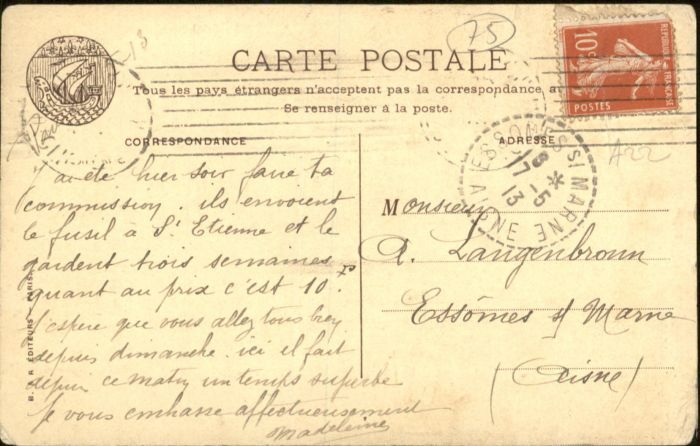 75
CARTE POSTALE
Tous les pays étrangers n'acceptent pas la correspondance au
Se renseigner à la poste.
RÉPUBLIQUE FRANÇAISE
10c
POSTES
CORRESPONDANCE
ADRESSE
ESSOMES S/ MARNE
8 *
17 -5
13
AISNE
A22
J'ai été hier soir faire ta
commission. ils envoient
le fusil à St Etienne et le
gardent trois semaines
quant au prix c'est 10.
J'espère que vous allez tous bien
depuis dimanche. ici il fait
depuis ce matin un temps superbe
Je vous embrasse affectueusement
Madeleine
Monsieur
A. Langenbronn
Essômes s/ Marne
(Aisne)
ÉDITEURS - PARIS